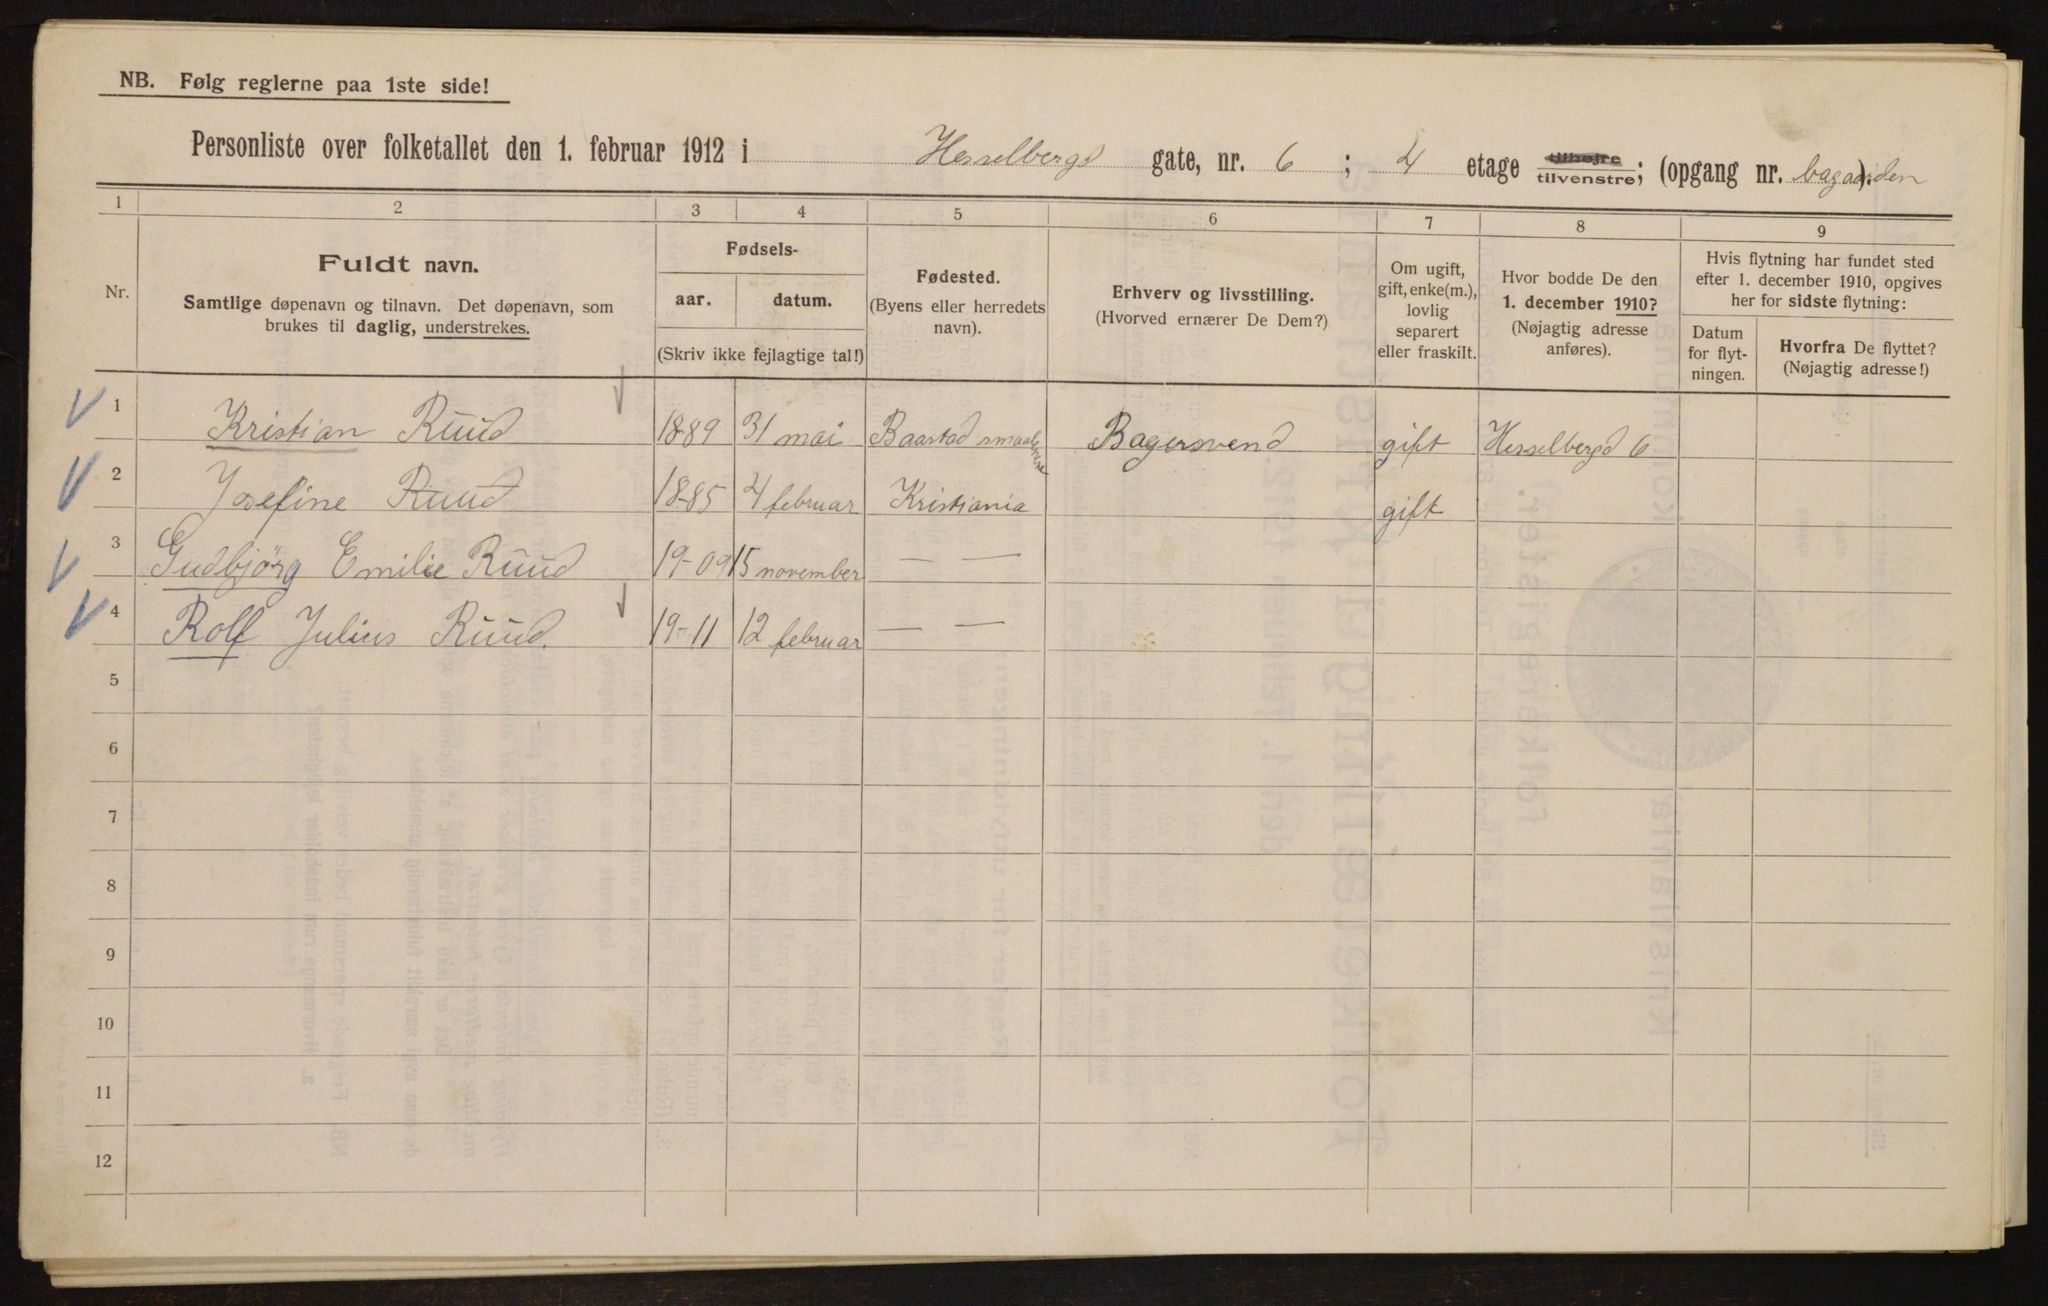 NB. Følg reglerne paa 1ste side!
Personliste over folketallet den 1. februar 1912 i Hesselbergs gate, nr. 6 ; 4 etage tilhøjre tilvenstre; (opgang nr. bagaarden).
1 2 3 4 5 6 7 8 9
Nr.
Fuldt navn.
Samtlige døpenavn og tilnavn. Det døpenavn, som
brukes til daglig, understrekes.
Fødsels-
aar. datum.
(Skriv ikke fejlagtige tal!)
Fødested.
(Byens eller herredets
navn).
Erhverv og livsstilling.
(Hvorved ernærer De Dem?)
Om ugift,
gift, enke(m.),
lovlig
separert
eller fraskilt.
Hvor bodde De den
1. december 1910?
(Nøjagtig adresse
anføres).
Hvis flytning har fundet sted
efter 1. december 1910, opgives
her for sidste flytning:
Datum
for flyt-
ningen.
Hvorfra De flyttet?
(Nøjagtig adresse!)
1 Kristian Ruud 18-89 31 mai Baastad smaalenene Bagersvend gift Hesselbergd 6
2 Josefine Ruud 18-85 4 februar Kristiania gift
3 Gudbjörg Emilie Ruud 19-09 15 november — —
4 Rolf Julius Ruud. 19-11 12 februar — —
5
6
7
8
9
10
11
12